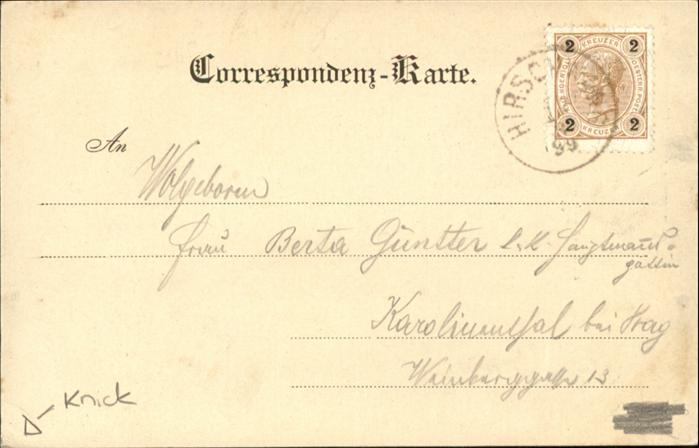 Correspondenz-Karte.
2 KREUZER 2
2 KREUZER 2
HIRSC
99
An
Wolgeboren
Frau Berta Güntter k. k. Hauptmanns-
gattin
Karolinenthal bei Prag
Weinberggasse 13
Knick